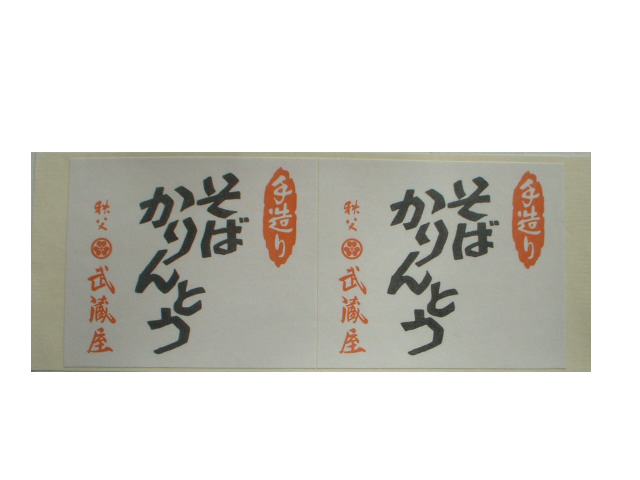 手造り
そば
かりんとう
秩父 武蔵屋
手造り
そば
かりんとう
秩父 武蔵屋